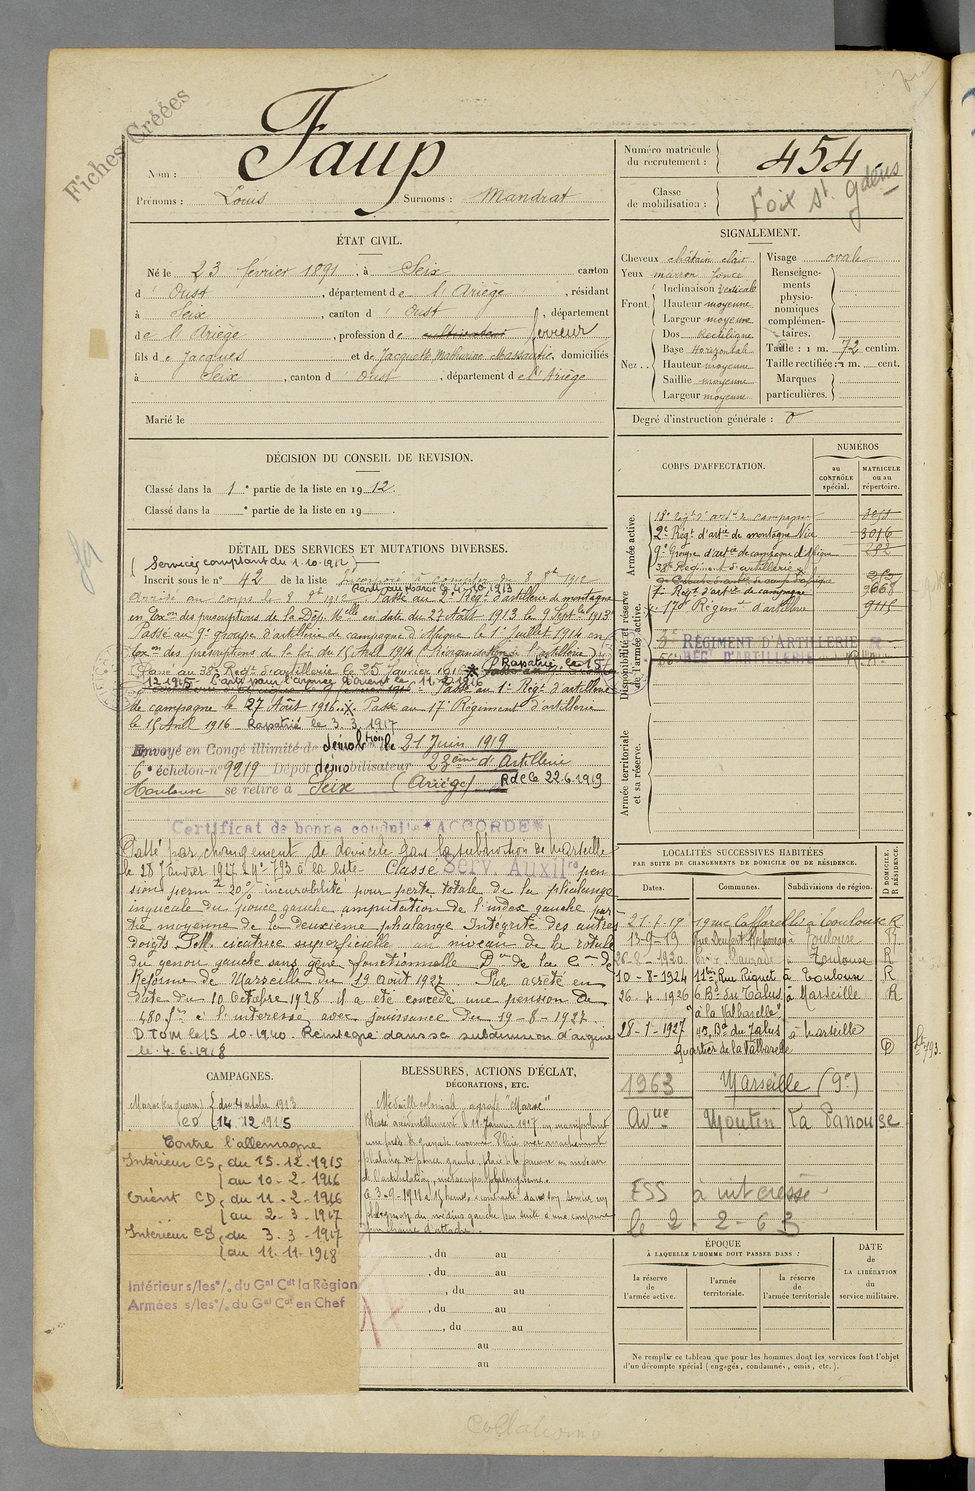 Fiches Créées
Nom : Faup
Prénoms : Louis Surnoms : Mandrat
Numéro matricule du recrutement : 454
Classe de mobilisation :
Foix St. Gdens
ÉTAT CIVIL.
Né le 23 février 1891, à Seix canton
d'Oust, département de l'Ariège, résidant
à Seix, canton d'Oust, département
de l'Ariège, profession de cultivateur Serreur
fils de Jacques et de Jacquette domiciliés
à Seix, canton d'Oust, département de l'Ariège
Marié le
SIGNALEMENT.
Cheveux châtain clair
Yeux marron foncé
Front. Inclinaison verticale
Hauteur moyenne
Largeur moyenne
Nez.. Dos Rectiligne
Base Horizontale
Hauteur moyenne
Saillie moyenne
Largeur moyenne
Visage ovale
Renseignements physionomiques complémentaires.
Taille : 1 m. 72 centim.
Taille rectifiée : 1 m. cent.
Marques particulières.
Degré d'instruction générale : 0
DÉCISION DU CONSEIL DE REVISION.
Classé dans la 1e partie de la liste en 1912.
Classé dans la e partie de la liste en 19
DÉTAIL DES SERVICES ET MUTATIONS DIVERSES.
(Services comptant du 1.10.1912)
Inscrit sous le n° 42 de la liste Incorporé à compter du 8 8bre 1912
Arrivé au corps le 8 8bre 1912 Passé au 2e Régt d'artillerie de montagne
en Exon des prescriptions de la Dép. Mlle en date du 27 Août 1913 le 9 Septbre 1913
Passé au 9e groupe d'artillerie de campagne d'Afrique le 1er Juillet 1914 en
Exon des prescriptions de la loi du 15 Avril 1914 (Réorganisation de l'artillerie)
Passé au 38e Regt d'artillerie le 25 Janvier 1916 Rapatrié le 15
12.1915 Parti pour l'armée d'Orient le 11.2.1916
Passé au 1er Régt d'artillerie
de campagne le 27 Août 1916 Passé au 17e Régiment d'artillerie
le 15 Avril 1916 Rapatrié le 3.3.1917
Envoyé en Congé illimité de démobtion le 21 Juin 1919
6e échelon n° 9219 Dépôt démobilisateur 23ème d'Artillerie
Toulouse se retire à Seix (Ariège) R de le 22.6.1919
Certificat de bonne conduite *ACCORDÉ*
Passé par changement de domicile dans la subdivision de Marseille
le 28 Janvier 1927 n° 793 à la liste Classé Serv. Auxilre pen
sion permte 20% incurabilité pour perte totale de la phalange
ingueale du pouce gauche amputation de l'index gauche par
tie moyenne de la deuxième phalange Intégrité des autres
doigts Petite cicatrice superficielle au niveau de la rotule
du genou gauche sans gêne fonctionnelle Don de la Con de
Réforme de Marseille du 19 Août 1927. Par arrêté en
date du 10 Octobre 1928 il a été concédé une pension de
480 frs à l'intéressé avec jouissance du 19-8-1927.
Réintegré dans sa subdivision d'origine
CORPS D'AFFECTATION.
NUMÉROS
au CONTRÔLE spécial.
MATRICULE ou au répertoire.
Armée active.
18e Régt d'artie de campagne
2e Régt d'artie de montagne Nice 3016
9e Groupe d'artie de campagne d'Afrique 282
38e Régiment d'artillerie
1er Régt d'artie de campagne 9668
17e Régiment d'artillerie 9115
Disponibilité et réserve de l'armée active.
RÉGIMENT D'ARTILLERIE
RÉG. D'ARTILLERIE
Armée territoriale et sa réserve.
LOCALITÉS SUCCESSIVES HABITÉES
PAR SUITE DE CHANGEMENTS DE DOMICILE OU DE RÉSIDENCE.
Dates. Communes. Subdivisions de région. D DOMICILE. R RÉSIDENCE.
21-7-19 19 rue Caffarelli à Toulouse R
13-9-19 à Toulouse R
26-8-1920 à Toulouse R
10-8-1924 11bis Rue Riquet à Toulouse R
26-4-1926 6 Bd du Talus à Marseille R
"à la Valbarelle"
28-1-1927 45, Bd du Talus à Marseille
quartier de la Valbarelle D 793.
1963 Marseille (9e)
Avue Moutin La Panouse
ESS à intéressé
le 2.2-63
CAMPAGNES.
14.12.1915
Contre l'allemagne
Intérieur CS, du 15.12.1915
au 10-2-1916
Orient CD, du 11-2-1916
au 2-3-1917
Intérieur CS, du 3.3-1917
au 11.11.1918
Intérieur s/les°/. du Gal Cdt la Région
Armées s/les°/. du Gal Cdt en Chef
BLESSURES, ACTIONS D'ÉCLAT,
DÉCORATIONS, ETC.
Médaille coloniale agrafe "Maroc"
Blessé accidentellement le 11 Janvier 1917 en manipulant
, du au
, du au
, du au
, du au
, du au
au
au
ÉPOQUE
À LAQUELLE L'HOMME DOIT PASSER DANS :
la réserve de l'armée active.
l'armée territoriale.
la réserve de l'armée territoriale
DATE de LA LIBÉRATION du service militaire.
Ne remplir ce tableau que pour les hommes dont les services font l'objet
d'un décompte spécial (engagés, condamnés, omis, etc.).